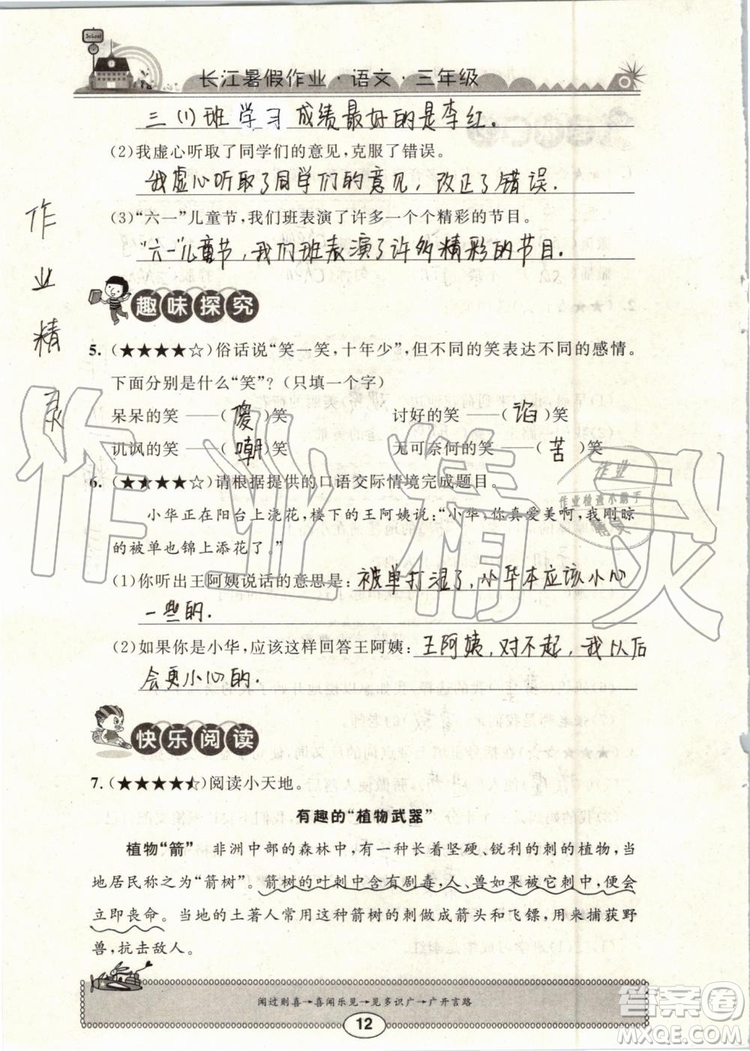 School
长江暑假作业·语文·三年级
三(1)班学习成绩最好的是李红。
(2)我虚心听取了同学们的意见,克服了错误。
我虚心听取了同学们的意见,改正了错误.
(3)“六一”儿童节,我们班表演了许多一个个精彩的节目。
“六一”儿童节,我们班表演了许多精彩的节目.
作业精灵
趣味探究
5.(★★★★☆)俗话说“笑一笑,十年少”,但不同的笑表达不同的感情。
下面分别是什么“笑”?(只填一个字)
呆呆的笑——(傻)笑 讨好的笑——(谄)笑
讥讽的笑——(嘲)笑 无可奈何的笑——(苦)笑
6.(★★★★☆)请根据提供的口语交际情境完成题目。
小华正在阳台上浇花,楼下的王阿姨说:“小华,你真爱美啊,我刚晾
的被单也锦上添花了。”
(1)你听出王阿姨说话的意思是:被单打湿了,小华本应该小心
一些的.
(2)如果你是小华,应该这样回答王阿姨:王阿姨,对不起,我以后
会更小心的.
快乐阅读
7.(★★★★⯪)阅读小天地。
有趣的“植物武器”
植物“箭” 非洲中部的森林中,有一种长着坚硬、锐利的刺的植物,当
地居民称之为“箭树”。箭树的叶刺中含有剧毒,人、兽如果被它刺中,便会
立即丧命。当地的土著人常用这种箭树的刺做成箭头和飞镖,用来捕获野
兽,抗击敌人。
闻过则喜→喜闻乐见→见多识广→广开言路
12
作业精灵
作业
作业检查小助手
精灵
答案圈
MXQE.COM